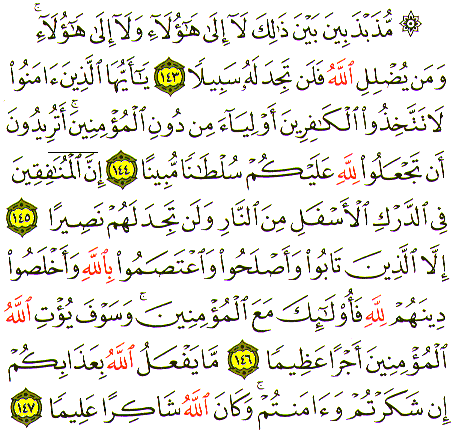 ۞ مُّذَبْذَبِينَ بَيْنَ ذَٰلِكَ لَآ إِلَىٰ هَٰٓؤُلَآءِ وَلَآ إِلَىٰ هَٰٓؤُلَآءِ ۚ
وَمَن يُضْلِلِ ٱللَّهُ فَلَن تَجِدَ لَهُۥ سَبِيلًا ١٤٣ يَٰٓأَيُّهَا ٱلَّذِينَ ءَامَنُوا۟
لَا تَتَّخِذُوا۟ ٱلْكَٰفِرِينَ أَوْلِيَآءَ مِن دُونِ ٱلْمُؤْمِنِينَ ۚ أَتُرِيدُونَ
أَن تَجْعَلُوا۟ لِلَّهِ عَلَيْكُمْ سُلْطَٰنًا مُّبِينًا ١٤٤ إِنَّ ٱلْمُنَٰفِقِينَ
فِى ٱلدَّرْكِ ٱلْأَسْفَلِ مِنَ ٱلنَّارِ وَلَن تَجِدَ لَهُمْ نَصِيرًا ١٤٥
إِلَّا ٱلَّذِينَ تَابُوا۟ وَأَصْلَحُوا۟ وَٱعْتَصَمُوا۟ بِٱللَّهِ وَأَخْلَصُوا۟
دِينَهُمْ لِلَّهِ فَأُو۟لَٰٓئِكَ مَعَ ٱلْمُؤْمِنِينَ ۖ وَسَوْفَ يُؤْتِ ٱللَّهُ
ٱلْمُؤْمِنِينَ أَجْرًا عَظِيمًا ١٤٦ مَّا يَفْعَلُ ٱللَّهُ بِعَذَابِكُمْ
إِن شَكَرْتُمْ وَءَامَنتُمْ ۚ وَكَانَ ٱللَّهُ شَاكِرًا عَلِيمًا ١٤٧